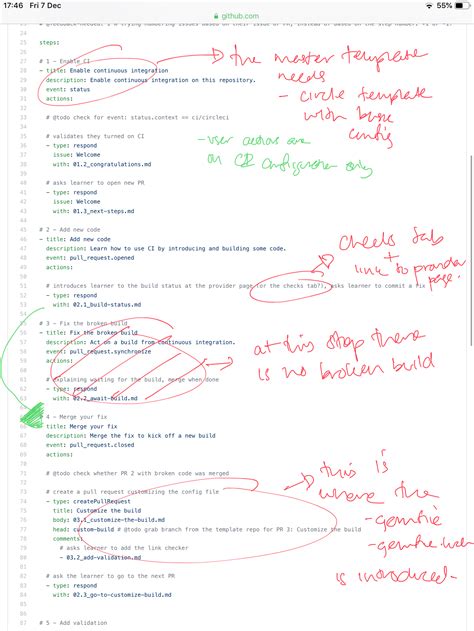 17:46 Fri 7 Dec
55%
github.com
25 steps:
26
27 # 1 - Enable CI
28 - title: Enable continuous integration
29 description: Enable continuous integration on this repository.
30 event: status
31 actions:
32
33 # @todo check for event: status.context == ci/circleci
34
35 # validates they turned on CI
36 - type: respond
37 issue: Welcome
38 with: 01.2_congratulations.md
39
40 # asks learner to open new PR
41 - type: respond
42 issue: Welcome
43 with: 01.3_next-steps.md
44
45 # 2 - Add new code
46 - title: Add new code
47 description: Learn how to use CI by introducing and building some code.
48 event: pull_request.opened
49 actions:
50
51 # introduces learner to the build status at the provider page (or the checks tab?), asks learner to commit a fix
52 - type: respond
53 with: 02.1_build-status.md
54
55 # 3 - Fix the broken build
56 - title: Fix the broken build
57 description: Act on a build from continuous integration.
58 event: pull_request.synchronize
59 actions:
60
61 # explaining waiting for the build, merge when done
62 - type: respond
63 with: 02.2_await-build.md
64
65 # 4 - Merge your fix
66 - title: Merge your fix
67 description: Merge the fix to kick off a new build
68 event: pull_request.closed
69 actions:
70
71 # @todo check whether PR 2 with broken code was merged
72
73 # create a pull request customizing the config file
74 - type: createPullRequest
75 title: Customize the build
76 body: 03.1_customize-the-build.md
77 head: custom-build # @todo grab branch from the template repo for PR 3: Customize the build
78 comments:
79 # asks learner to add the link checker
80 - 03.2_add-validation.md
81
82 # ask the learner to go to the next PR
83 - type: respond
84 with: 02.3_go-to-customize-build.md
85
86
87 # 5 - Add validation
the master template
needs
- circle template
with base
config
- user actions are
on configuration only
checks tab
+
link to provider
page.
at this step there
is no broken build
this is
where the
- gemfile
- gemfile.lock
is introduced.